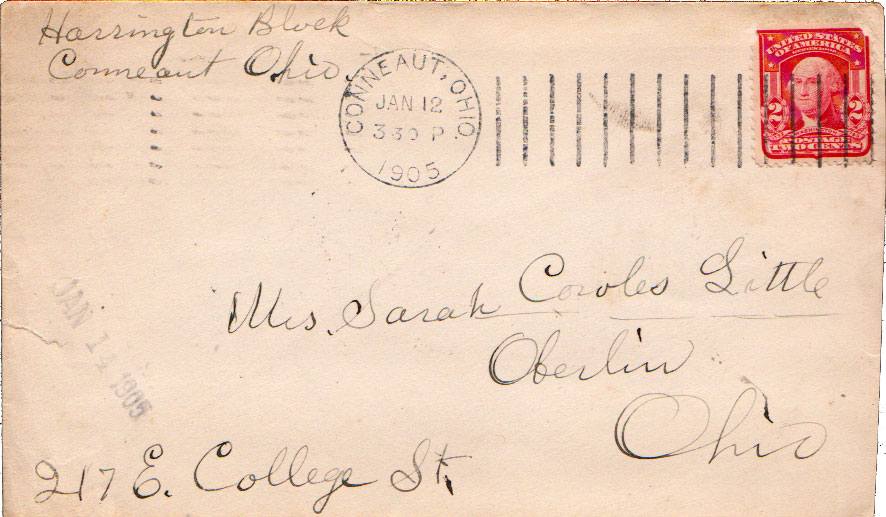 Harrington Block
Conneaut Ohio.
CONNEAUT, OHIO.
JAN 12
3 30 P
1905
UNITED STATES
OF AMERICA
2 2
WASHINGTON
POSTAGE
TWO CENTS
JAN 14 1905
Mrs. Sarah Cowles Little
Oberlin
Ohio
217 E. College St.